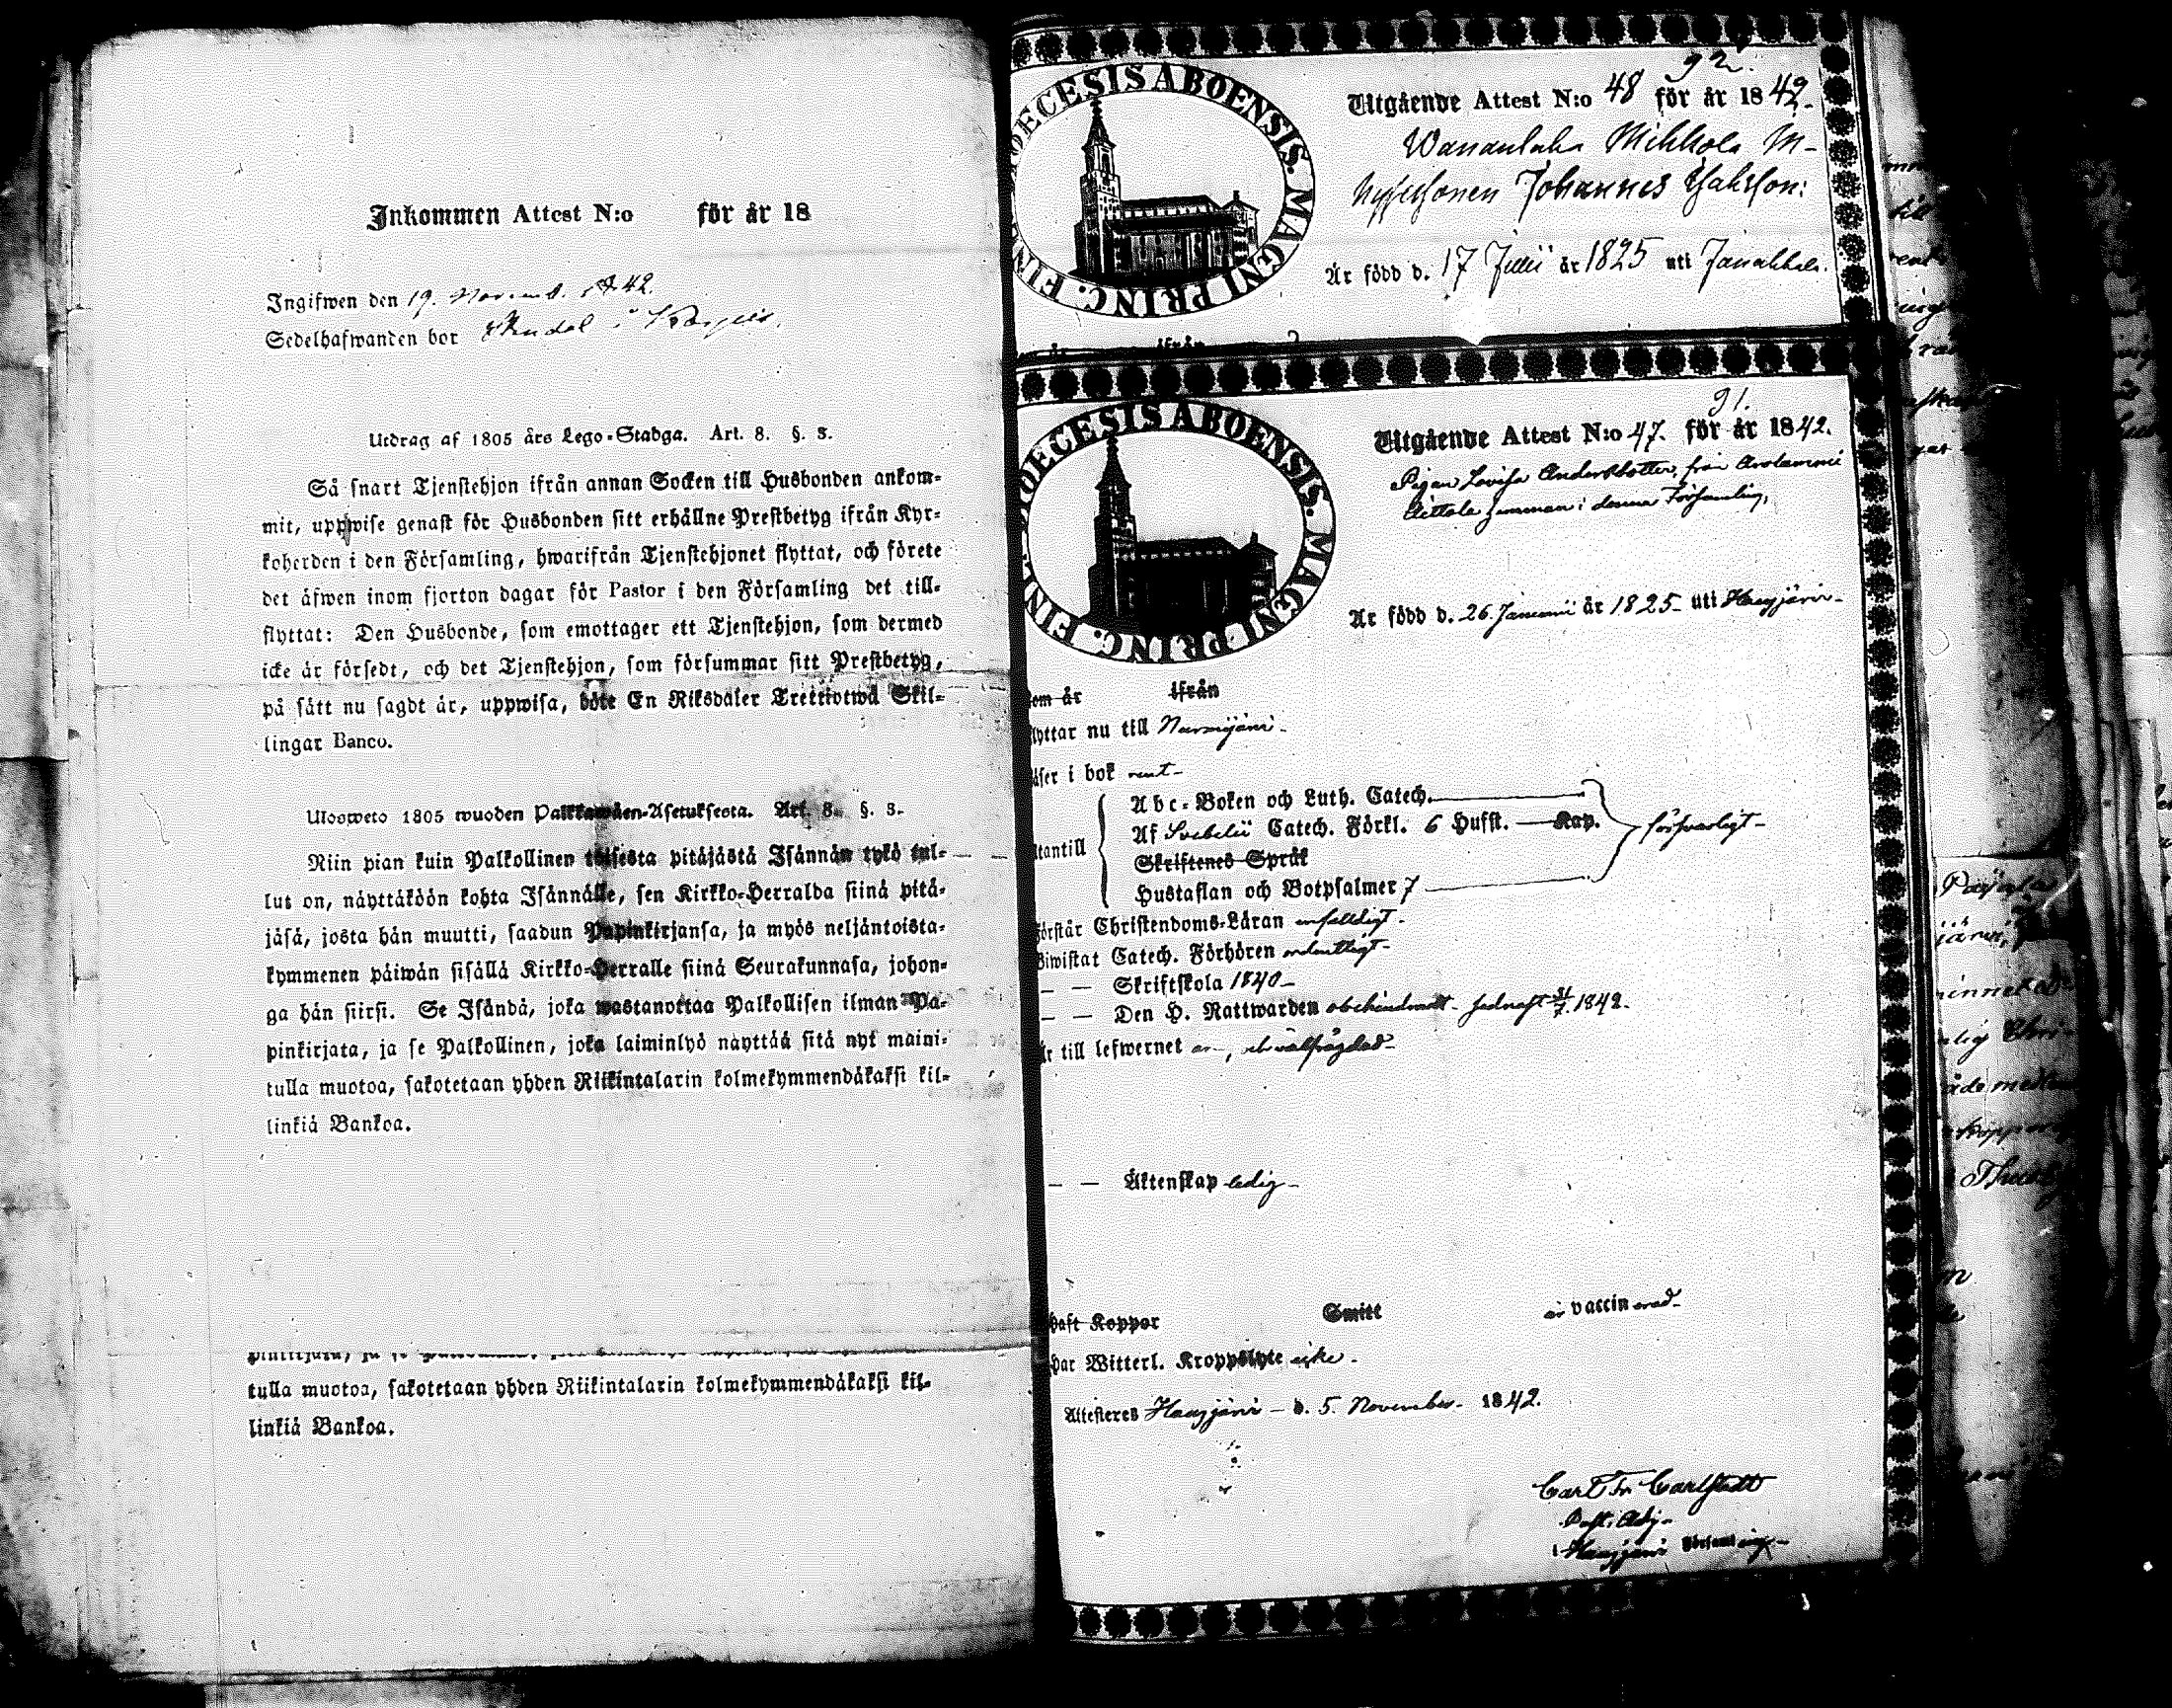 Inkommen Attest N:o för år 18
Ingifwen den 19. Novemb. 1842.
Sedelhafwanden bor i
Utdrag af 1805 års Lego-Stadga. Art. 8. §. 3.
Så snart Tjenstehjon ifrån annan Socken till Husbonden ankom-
mit, uppwise genast för Husbonden sitt erhållne Prestbetyg ifrån Kyr-
koherden i den Församling, hwarifrån Tjenstehjonet flyttat, och förete
det äfwen inom fjorton dagar för Pastor i den Församling det till-
flyttat: Den Husbonde, som emottager ett Tjenstehjon, som dermed
icke är försedt, och det Tjenstehjon, som försummar sitt Prestbetyg,
på sätt nu sagdt är, uppwisa, böte En Riksdaler Trettiotwå Skil-
lingar Banco.
Ulosweto 1805 wuoden Palkkawäen-Asetuksesta. Art. 8. §. 3.
Niin pian kuin Palkollinen toisesta pitäjästä Isännän tykö tul-
lut on, näyttäköön kohta Isännälle, sen Kirkko-Herralda siinä pitä-
jäsä, josta hän muutti, saadun Papinkirjansa, ja myös neljäntoista-
kymmenen päiwän sisällä Kirkko-Herralle siinä Seurakunnasa, johon-
ga hän siirsi. Se Isändä, joka wastanottaa Palkollisen ilman Pa-
pinkirjata, ja se Palkollinen, joka laiminlyö näyttää sitä nyt maini-
tulla muotoa, sakotetaan yhden Riikintalarin kolmekymmendäkaksi kil-
linkiä Bankoa.
tulla muotoa, sakotetaan yhden Riikintalarin kolmekymmendäkaksi kil-
linkiä Bankoa.
92.
DIOECESIS ABOENSIS. MAGNI PRINC. FIN
Utgående Attest N:o 48 för år 1842.
Mikkola M-
Johannes
Är född d. 17 Julii år 1825 uti Janakkala.
ifrån
91.
DIOECESIS ABOENSIS. MAGNI PRINC. FIN
Utgående Attest N:o 47. för år 1842.
Pigan Lovisa Andersdotter, från
Aittola hemman i denna Församling,
Är född d. 26. Januarii år 1825 uti Hausjärvi
om är ifrån
lyttar nu till Nurmijärvi
äser i bok rent
Abc-Boken och Luth. Catech.
Af Svebelii Catech. Förkl. 6 Hufst. Kap. försvarligt
tantill
Skriftenes Språk
Hustaflan och Botpsalmer 7
örstår Christendoms-Läran enfaldigt
Biwistat Catech. Förhören ordentligt
— — Skriftskola 1840
— — Den H. Nattwarden obehindradt sednast 31/7 1842.
r till lefwernet välfrägdad
— — Äktenskap ledig
haft Koppor Smitt är vaccinerad
har Witterl. Kroppslyte icke
Attesteres Hausjärvi d. 5. November 1842.
Carl Fr Carlstedt
Past: Adj.
i Hausjärvi Församling